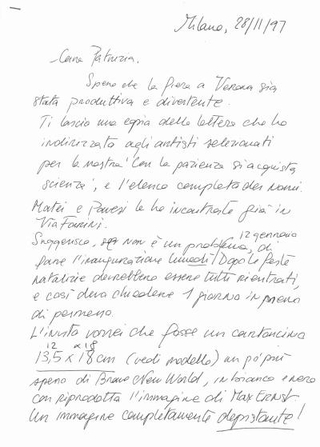 Milano, 28/11/97
Cara Patrizia,
Spero che la fiera a Verona sia
stata produttiva e divertente.
Ti lascio una copia della lettera che ho
indirizzato agli artisti selezionati
per la mostra 'Con la pazienza si acquista
scienza', e l'elenco completo dei nomi.
Matei e Pavesi le ho incontrate già in
Via Farini.
Suggerisco, se non è un problema, di
12 gennaio
fare l'inaugurazione lunedì! Dopo le feste
natalizie dovrebbero essere tutti rientrati,
e così devo chiedere 1 giorno in meno
di permesso.
L'invito vorrei che fosse un cartoncino
12 x 18
13,5 x 18 cm (vedi modello) un po' più
spesso di Brave New World, in bianco e nero
con riprodotta l'immagine di Max Ernst.
Un immagine completamente depistante!